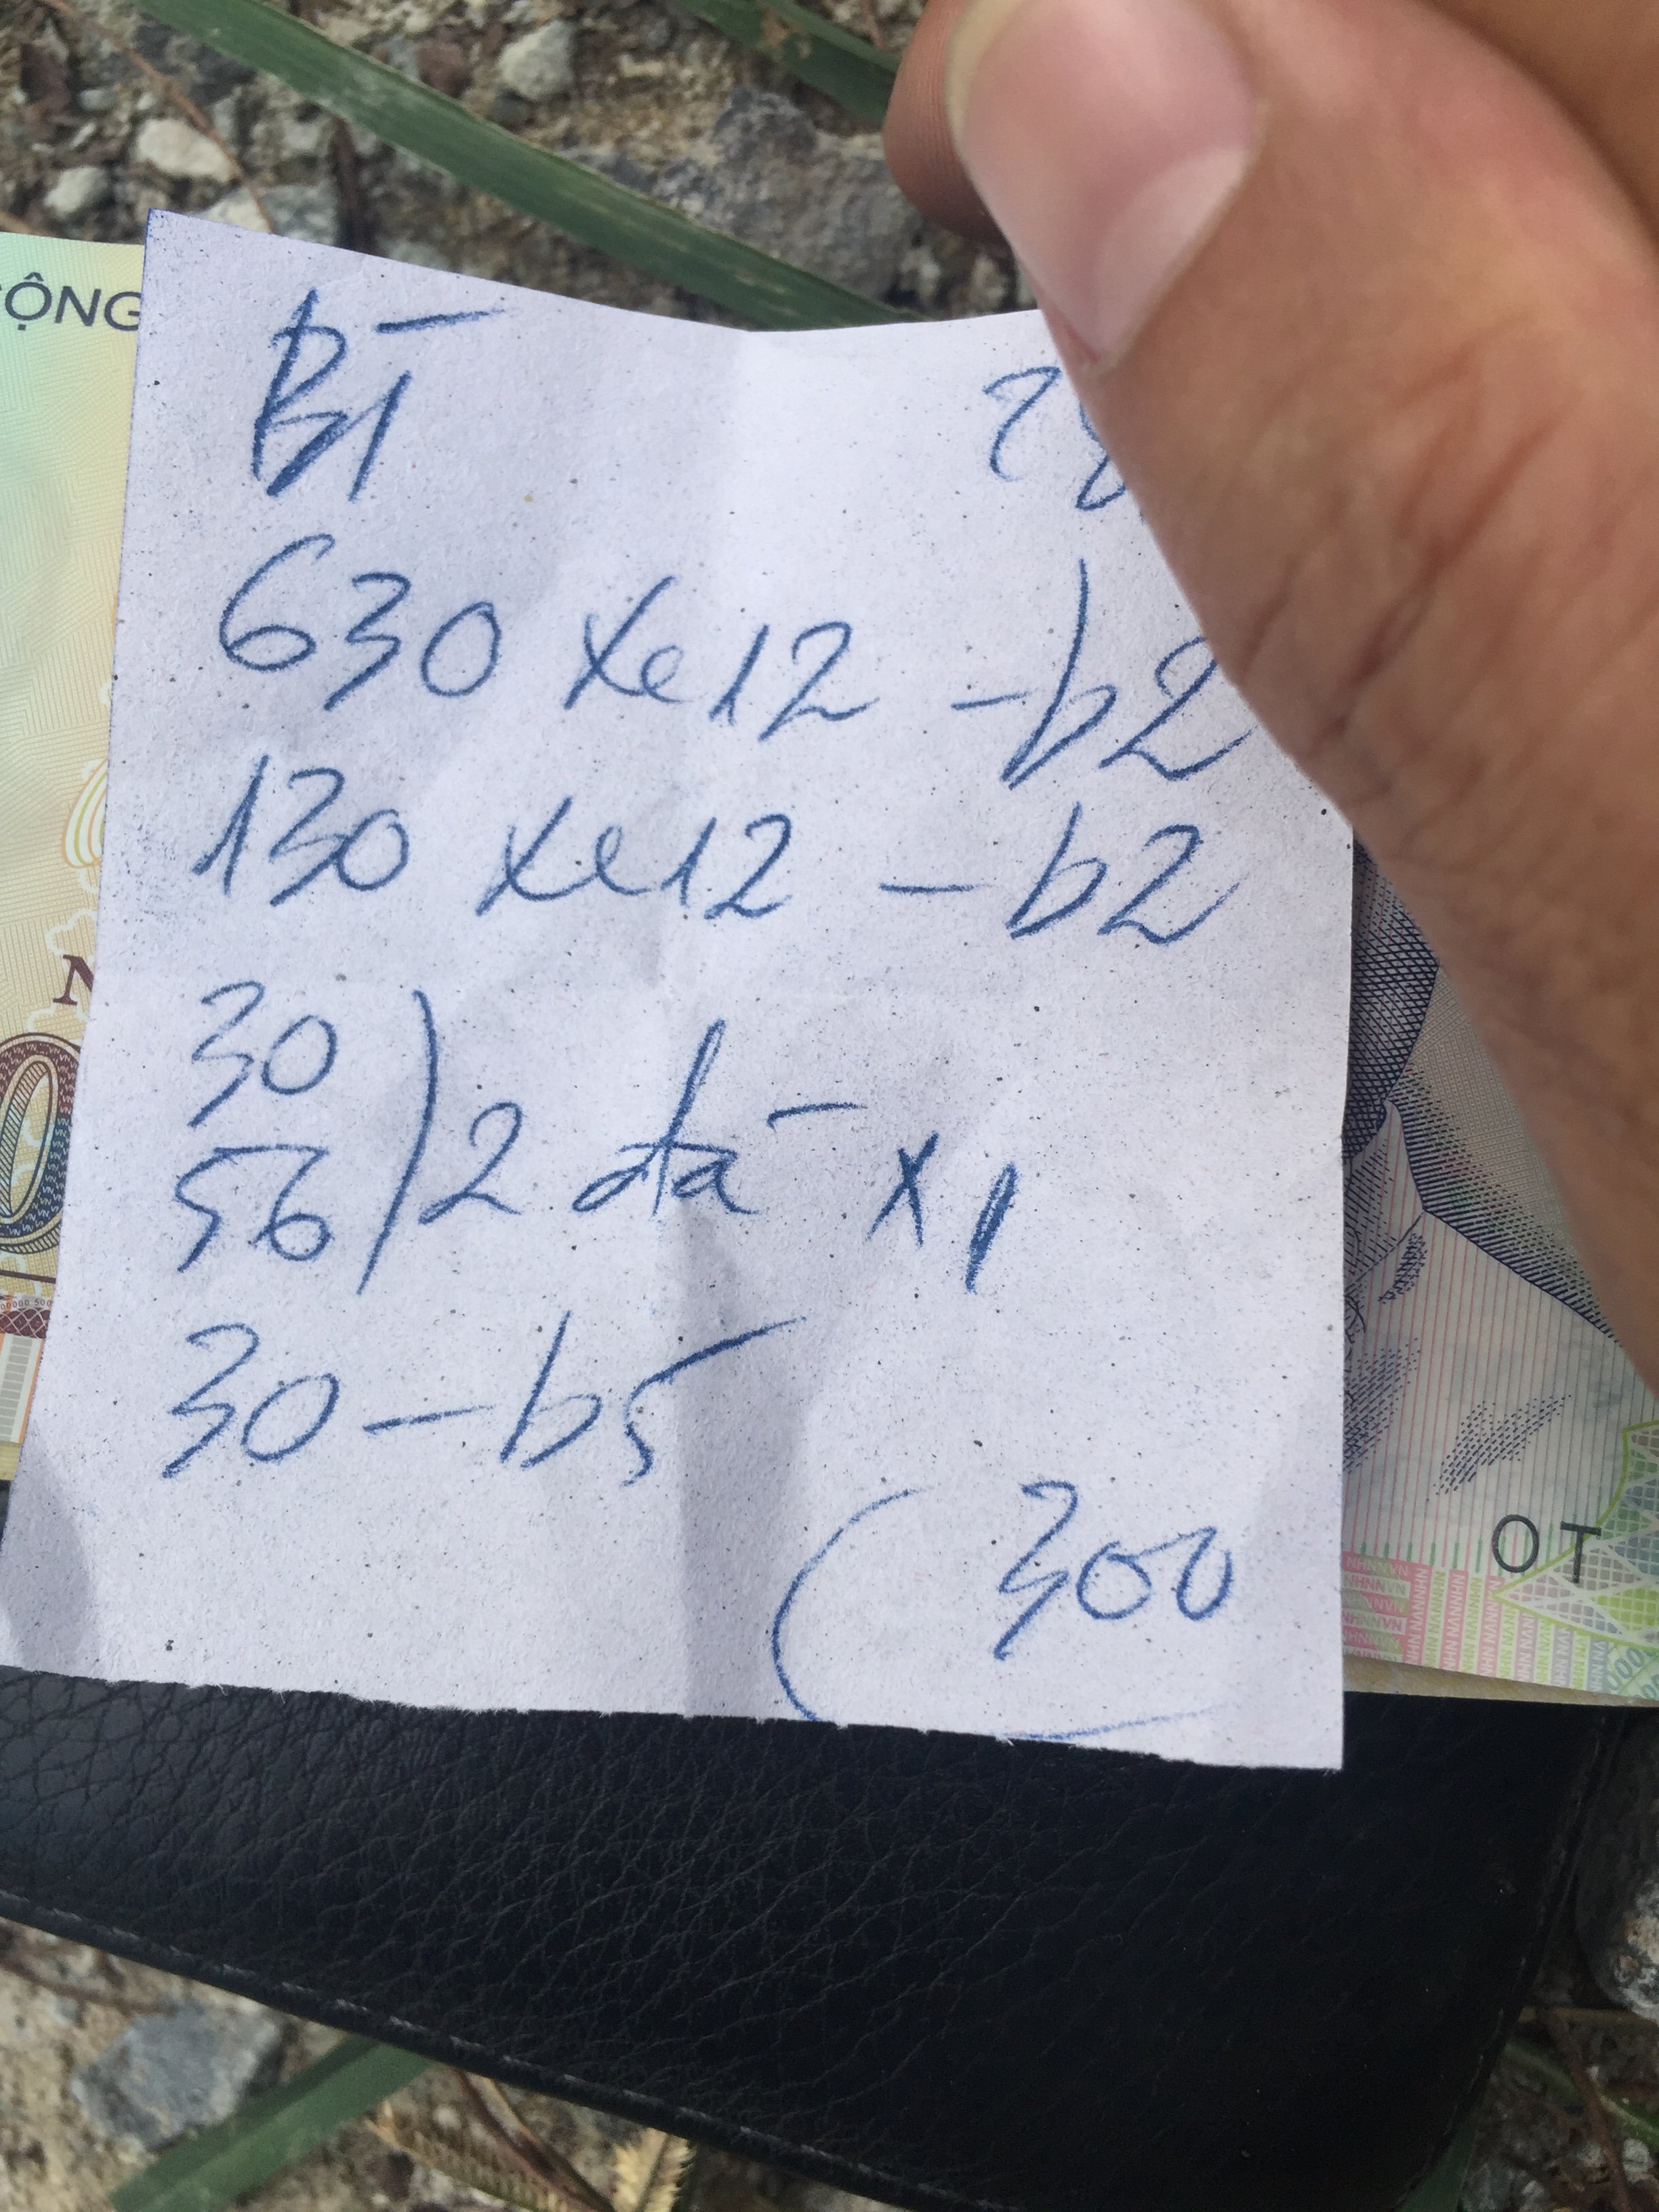 ỘNG
BT
630 xe12 - b2
130 xe12 - b2
30
56 ) 2 đá x1
30 - b5
300
OT